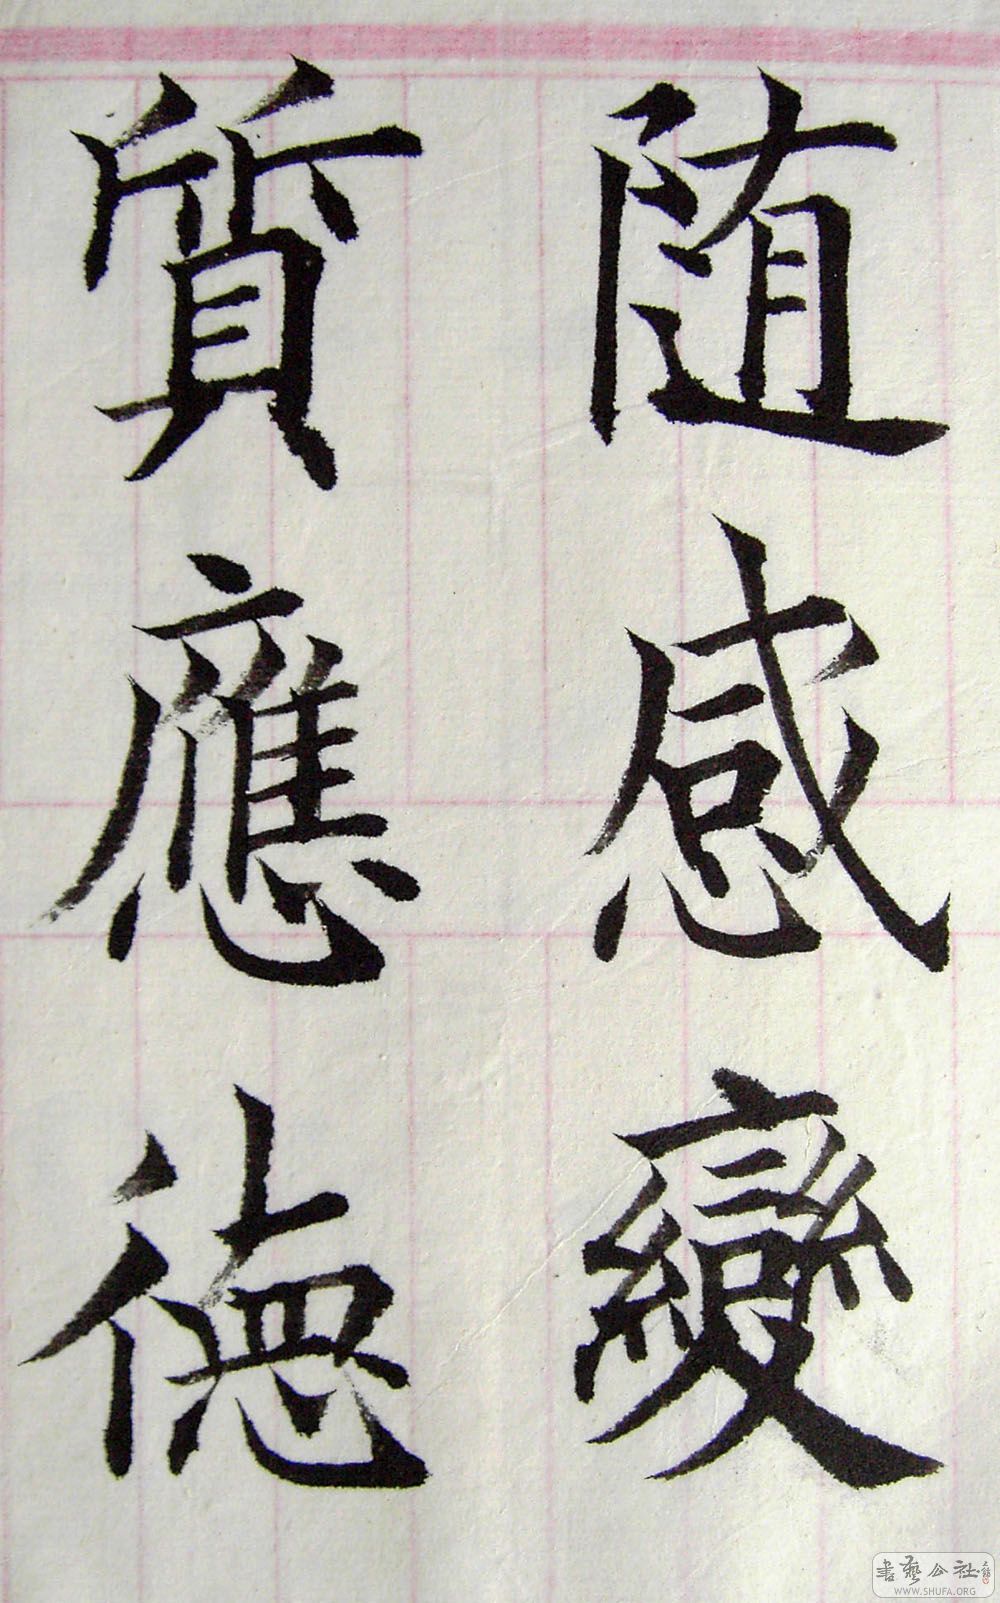 随感變
質應德
書藝公社
WWW.SHUFA.ORG